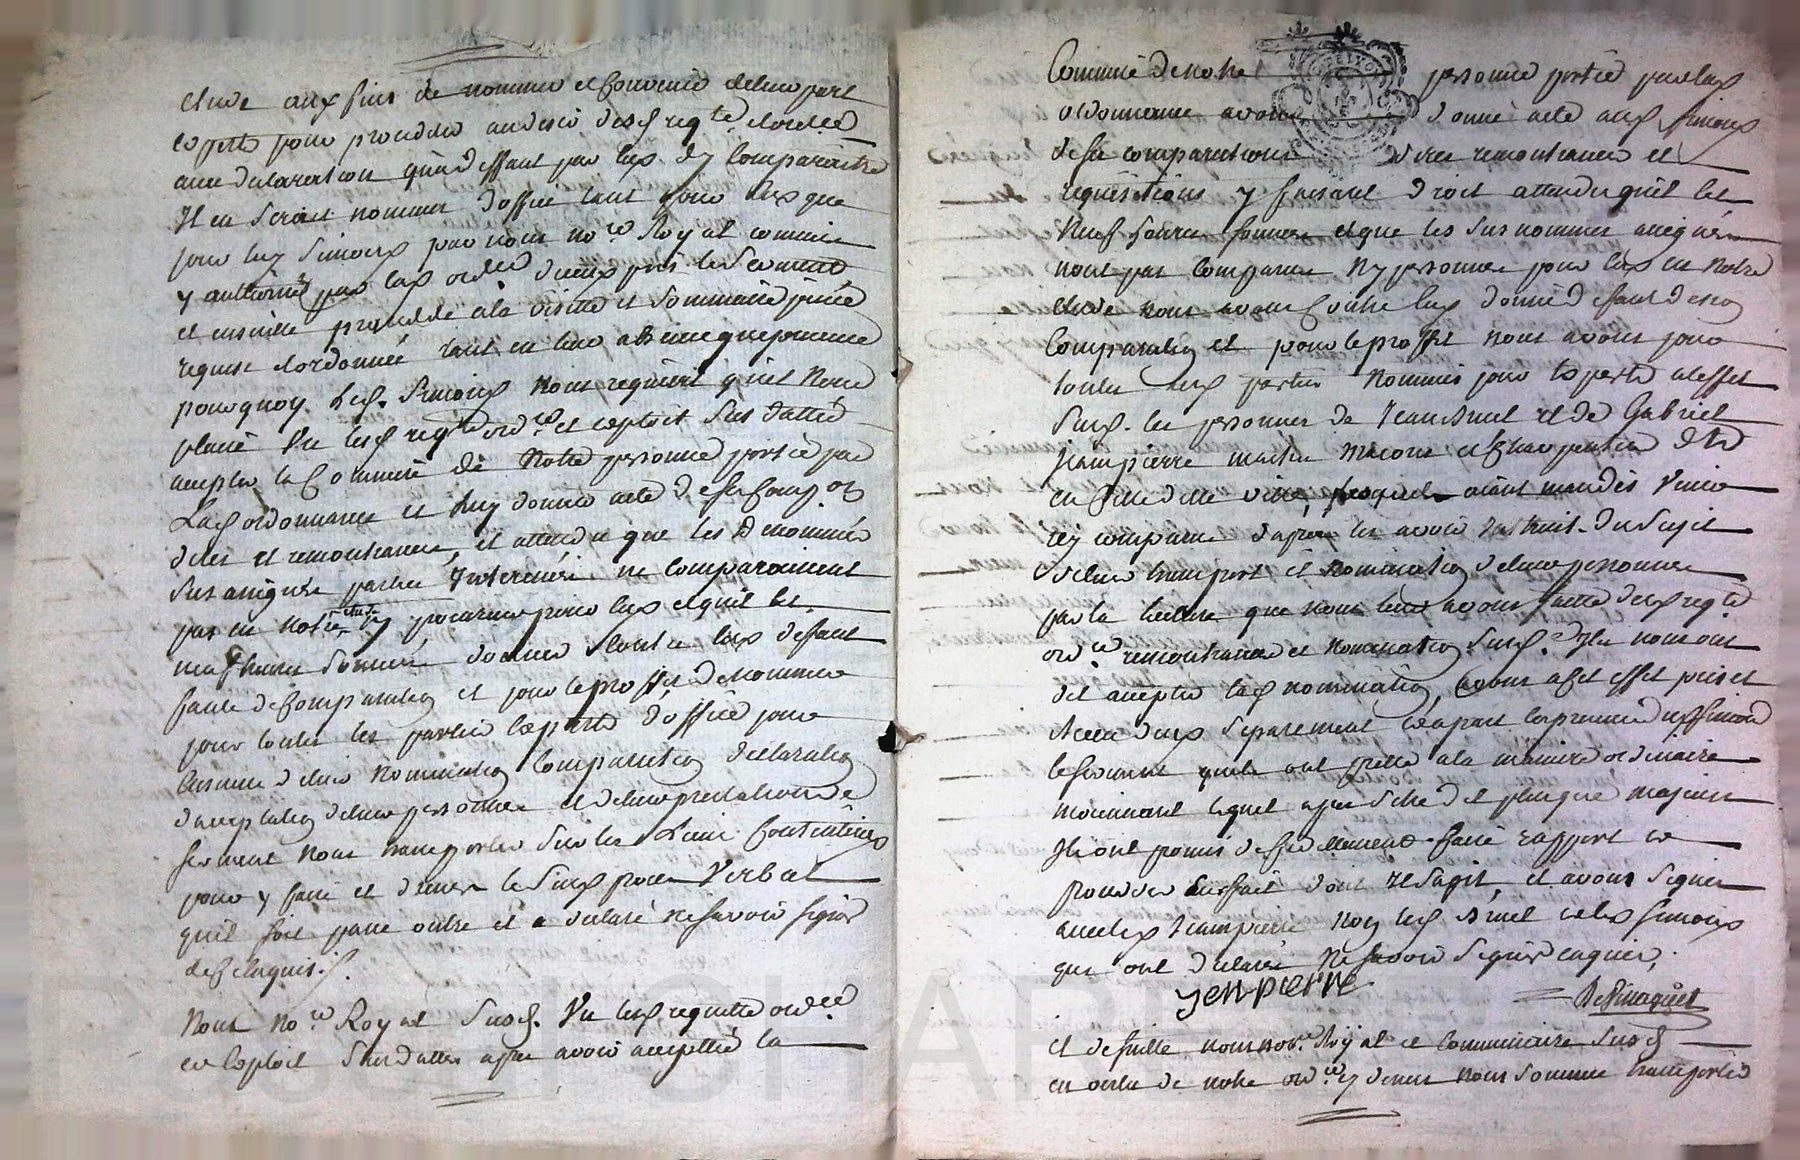 Etude aux fins de nommer et convenir de leur part
experts pour proceder au desir desd. reqte. et ordce.
avec declaration qu'a deffaut par eux d'y comparaitre
Il en seroit nommer d'office tant pour eux que
pour luy Simoux par nous nore. Royal commis
y authorisé par lad ordce. d'iceux pris le serment
et ensuitte procedde a la visitte et sommaire prisée
requise et ordonnée tant en leur absence que presence
pourquoy led. Simoux nous requiert qu'il nous
plaise vu lesd. reqte ordce. et exploit sus datté
accepter la commission de notre personne portée par
lad ordonnance et luy donner acte de sa compon
dires et remontrances, et attendu que les denommés
sus assignés parties Interessées ne comparoissent
pas en notre etude ny personne pour eux et qu'il est
neuf heures sonnées, donner contre eux deffaut
faute de comparution et pour le proffit de nommer
pour toutes les parties experts d'office pour
ensuitte de leur nomination comparution declaration
d'acceptation de leur personne et de leur prestation de
serment nous transporter sur les Lieux contentieux
pour y faire et dresser le susd. procès Verbal
qu'il soit passé outre et a declaré ne savoir signer
de ce enquis ./.
Nous nore. Royal susd. Vu lesd requette ordce.
et Exploit sus dattés apres avoir accepttée la
Commission de notre personne portée par lad
ordonnance avons donné acte aud Simoux
de sa comparution dires remontrances et
requisitions y faisant droit attendu qu'il est
Neuf heures sonnées et que les sus nommés assignés
n'ont pas comparus ny personnes pour eux en notre
Etude nous avons contre eux donné deffaut de non
Comparution et pour le proffit nous avons pour
toutes les parties nommés pour experts a l'effet
susd. les personnes de et de Gabriel
Jeampierre maitre macons et charpentier
en cette ville lesquels aïant mandés Venir
icy comparus d'apres les avoir instruit du sujet
de leur transport et nomination de leur personnes
par la lecture que nous leur avons faitte desd reqte
ordce. remontrances et nomination susd. Ils nous ont
dit accepter lad nomination, avons a cet effet pris et
d'eux separement et a part en presence dud Simoux
le serment qu'ils ont pretté a la maniere ordinaire
moiennant lequel apres s'etre dit plus que majeurs
Ils ont promis de fidellement faire rapport et
proceder au fait dont il s'agit, et avons signés
avec led Jeampierre non led et led Simoux
qui ont declarés ne savoir signer enquis,
jenpierre
Et de suitte nous nore. Royal et Commissaire susd
en vertu de notre ordce. y dessus nous sommes transportés